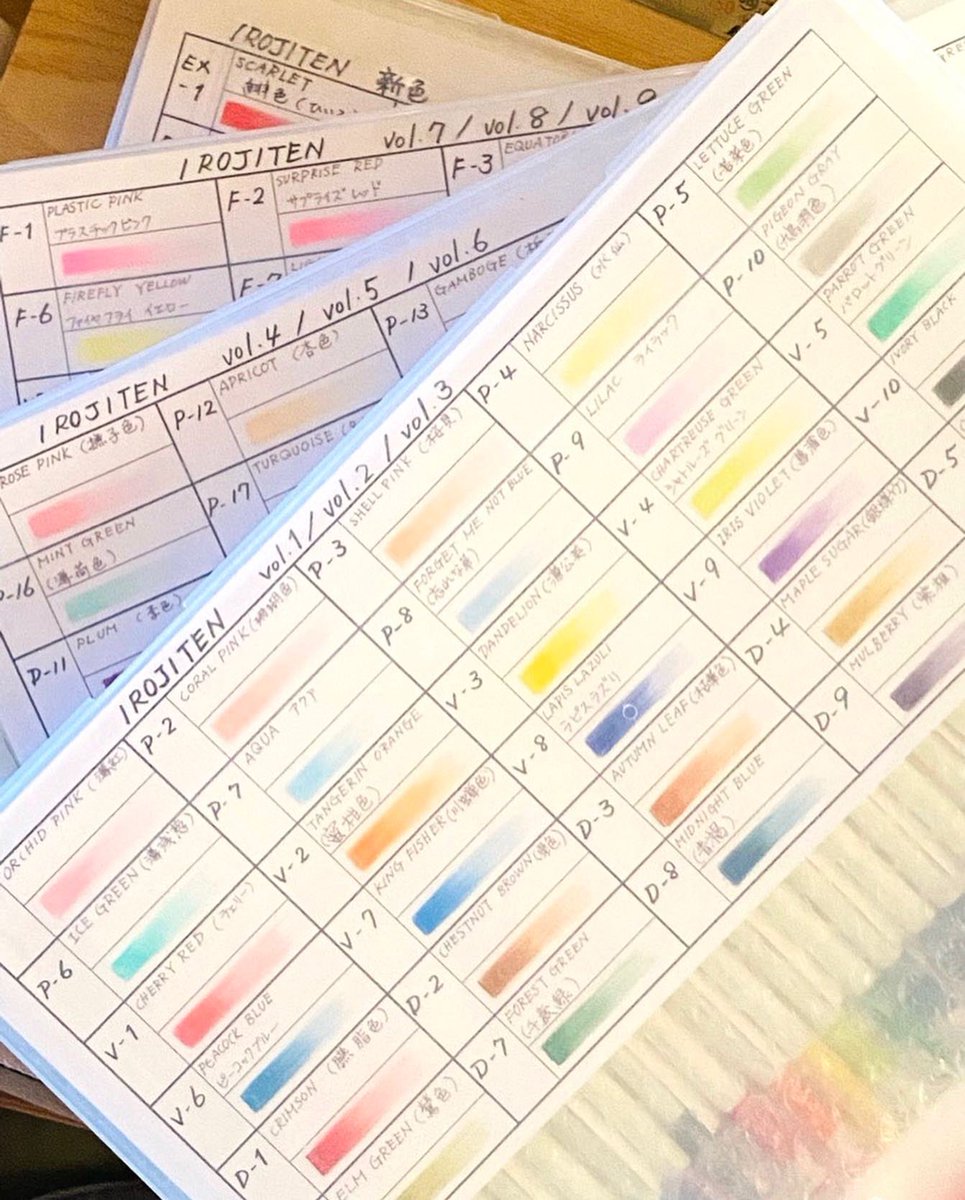 IROJITEN 新色
EX
-1
SCARLET
IROJITEN vol.7 / vol.8 / vol.9
F-1
PLASTIC PINK
プラスチックピンク
F-2
SURPRISE RED
サプライズ レッド
F-3
F-6
FIREFLY YELLOW
ファイヤフライ イエロー
IROJITEN vol.4 / vol.5 / vol.6
ROSE PINK (撫子色)
P-12
APRICOT (杏色)
P-13
GAMBOGE
P-16
MINT GREEN
(薄荷色)
P-17
TURQUOISE
D-11
PLUM (李色)
IROJITEN vol.1 / vol.2 / vol.3
ORCHID PINK (薄紅)
P-2
CORAL PINK (珊瑚色)
P-3
SHELL PINK
P-4
NARCISSUS
P-5
LETTUCE GREEN
P-6
ICE GREEN (薄浅葱)
P-7
AQUA アクア
P-8
FORGET ME NOT BLUE
P-9
LILAC ライラック
P-10
PIGEON GRAY
V-1
CHERRY RED (チェリー)
V-2
TANGERIN ORANGE
(蜜柑色)
V-3
DANDELION (蒲公英)
V-4
CHARTREUSE GREEN
シャトルーズ グリーン
V-5
PARROT GREEN
パロットグリーン
V-6
PEACOCK BLUE
ピーコックブルー
V-7
KING FISHER (川蝉色)
V-8
LAPIS LAZULI
ラピスラズリ
V-9
IRIS VIOLET (菖蒲色)
V-10
IVORY BLACK
D-1
CRIMSON (臙脂色)
D-2
CHESTNUT BROWN (栗色)
D-3
AUTUMN LEAF (枯葉色)
D-4
MAPLE SUGAR
D-5
ELM GREEN (鶯色)
D-7
FOREST GREEN
(千歳緑)
D-8
MIDNIGHT BLUE
(青褐)
D-9
MULBERRY